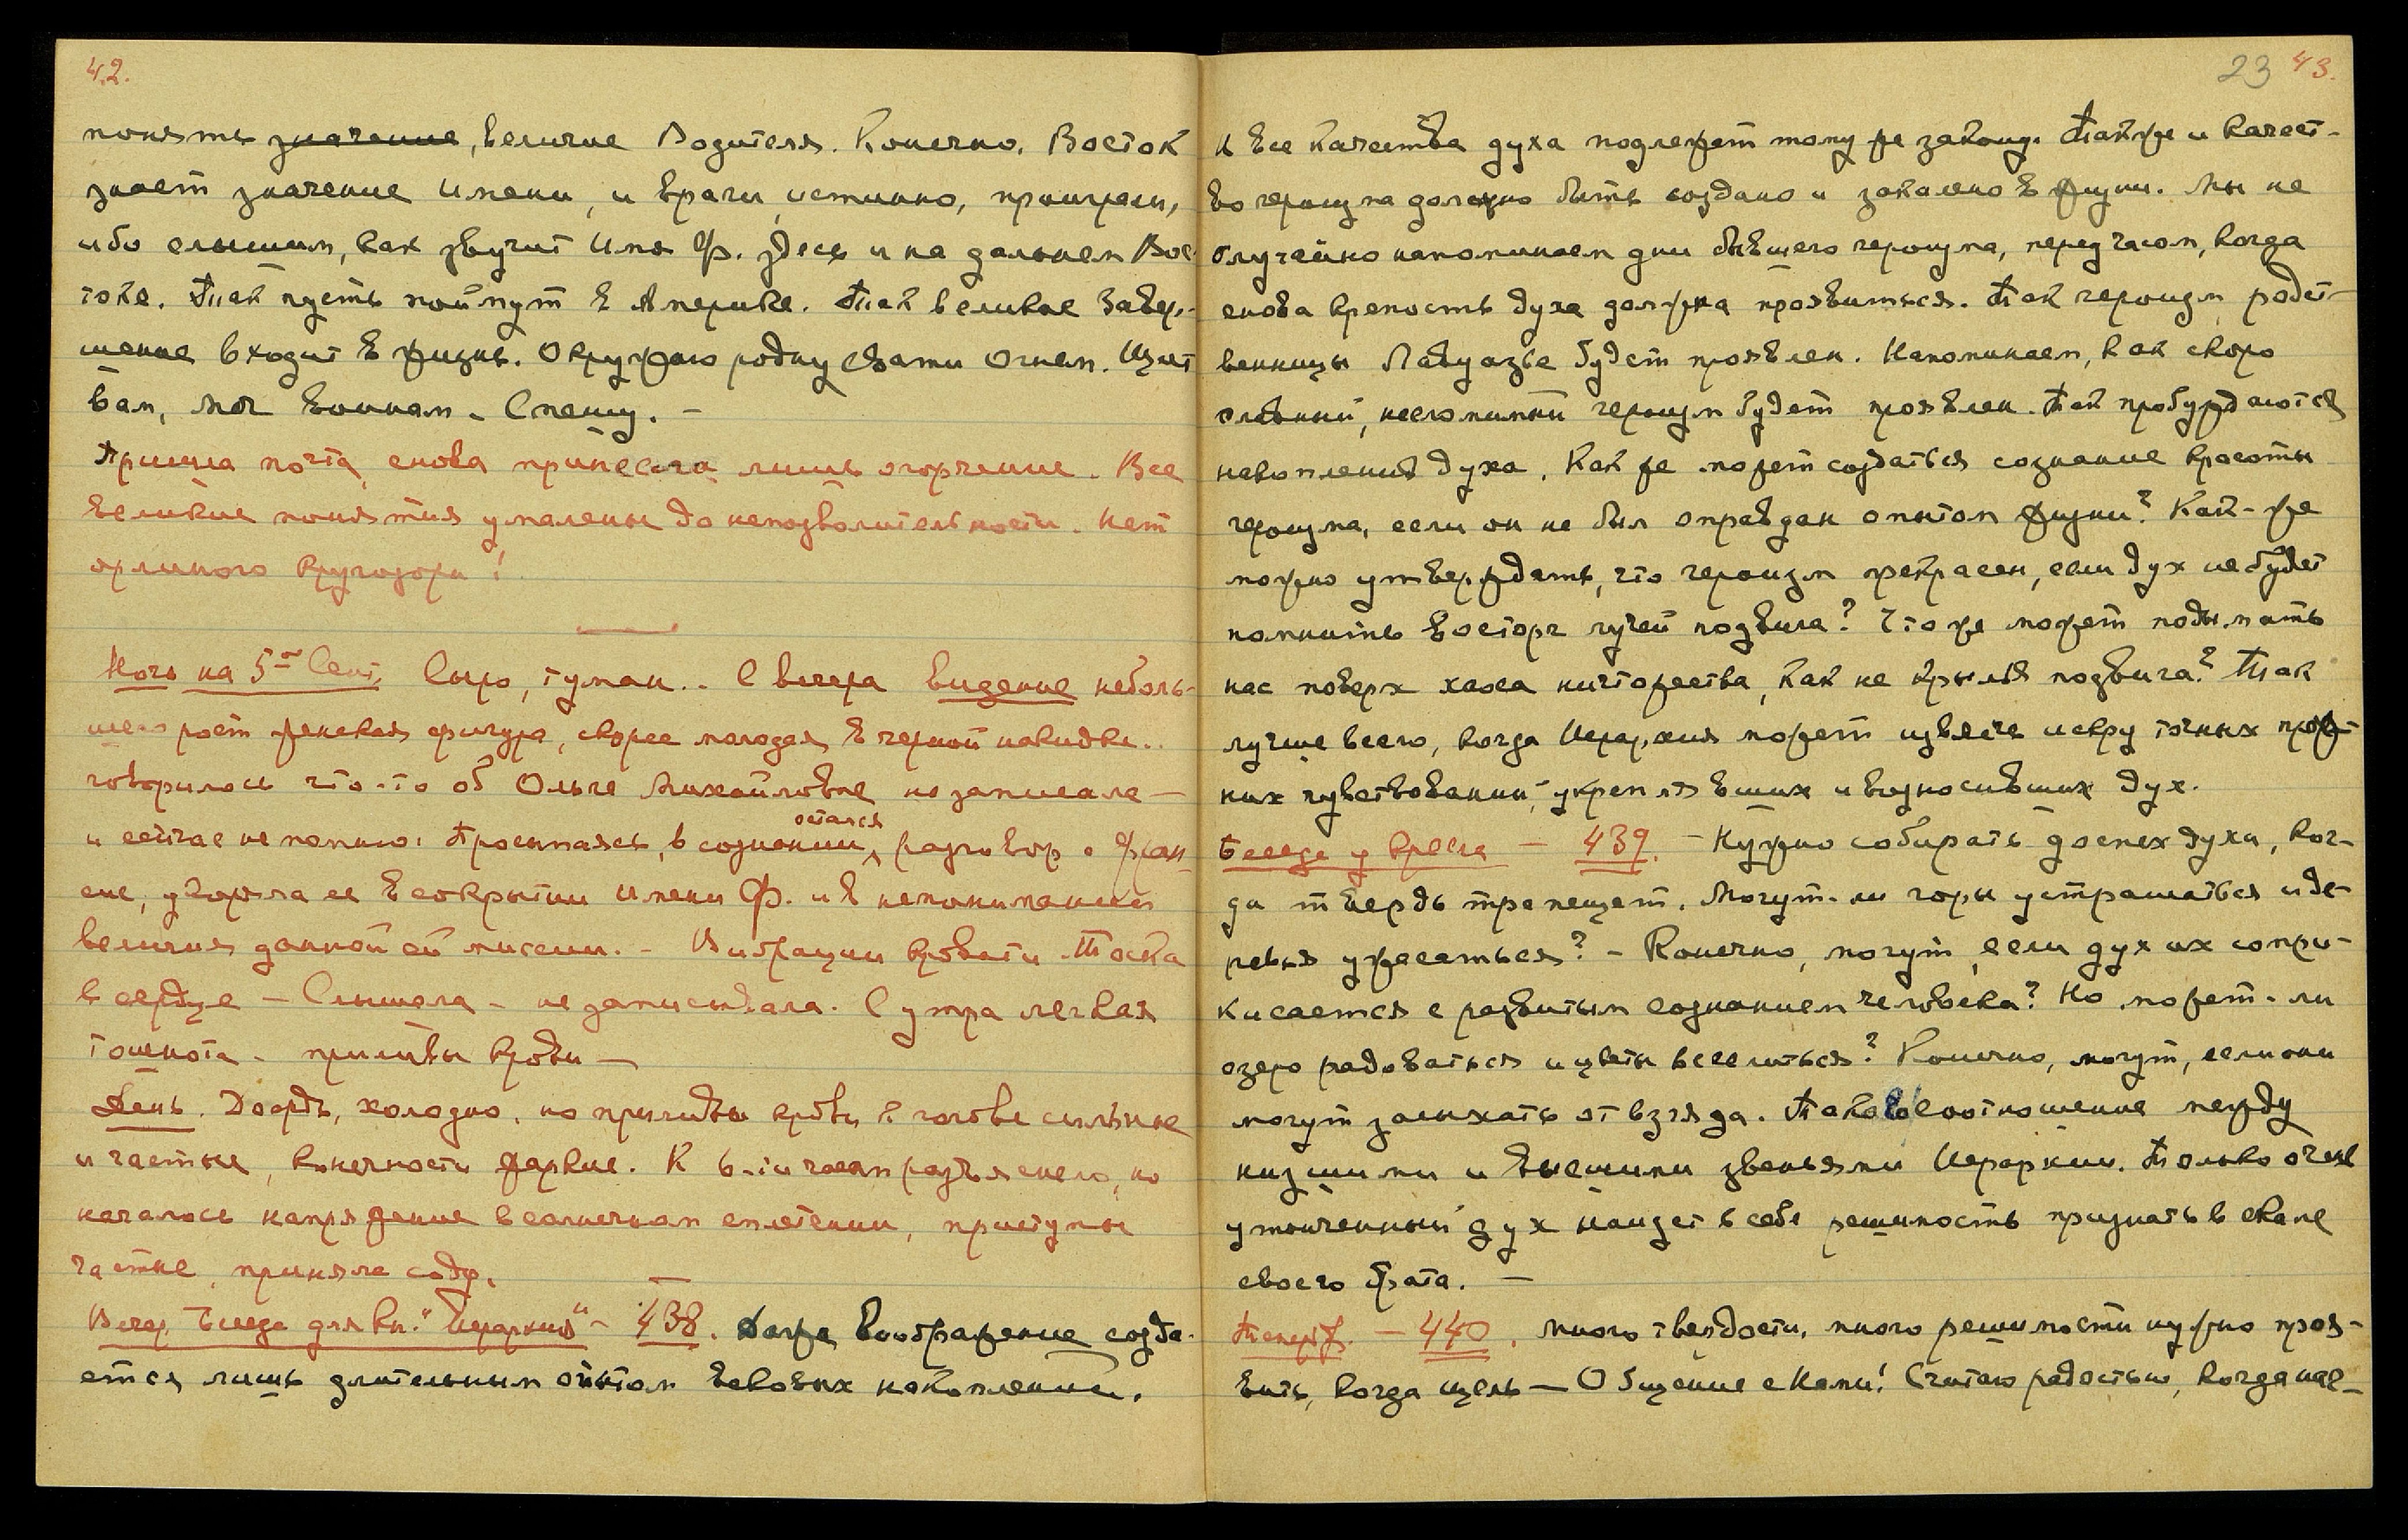 42.
понять значение, величие Водителя. Конечно, Восток
знает значение Имени, и враги, истинно, проиграли,
ибо слышим, как звучит Имя Ф. здесь и на дальнем Вос-
токе. Так пусть поймут в Америке. Так великое Завер-
шение входит в жизнь. Окружаю родну Свати огнем. Щит
вам, Мои воинам. Спешу. —
Пришла почта, снова принесла лишь огорчение. Все
великие понятия умалены до непозволительности. Нет
орлиного кругозора!
Ночь на 5-ое Сент. Сыро, туман.. С вечера видение неболь-
шего рост женская фигура, скорее молодая, в черной накидке..
говорилось что-то об Ольге Михайловне не записала —
и сейчас не помню. Просыпаясь, в сознании остался разговор о Фран-
сис, укоряла ее в сокрытии Имени Ф. и в непонимании
величия данной ей миссии. — Вибрации кровати. Тоска
в сердце — Слышала — не записывала. С утра легкая
тошнота — приливы крови —
День. Дождь, холодно, но приливы крови к голове сильные
и частые, конечности жаркие. К 6-ти часам разъяснело, но
началось напряжение в солнечном сплетении, приступы
частые, приняла соду.
Вечер. Беседа для кн. "Иерархия" — 438. Даже воображение созда-
ется лишь длительным опытом вековых накоплений.
23 43.
и все качества духа подлежат тому же закону. Также и качест-
во героизма должно быть создано и закалено в жизни. Мы не
случайно напоминаем дни бывшего героизма, перед часом, когда
снова крепость духа должна проявиться. Так героизм родст-
венницы Лавуазье будет проявлен. Напоминаем, как скоро
славный, несломимый героизм будет проявлен. Так пробуждаются
накопления духа. Как же может создаться сознание красоты
героизма, если он не был оправдан опытом жизни? Как-же
можно утверждать, что героизм прекрасен, если дух не будет
помнить восторг лучей подвига? Что же может подымать
нас поверх хаоса ничтожества, как не крылья подвига? Так
лучше всего, когда Иерархия может извлечь искру точных преж-
них чувствований, укреплявших и возносивших дух.
Беседа у кресла — 439. — Нужно собирать доспех духа, ког-
да твердь трепещет. Могут-ли горы устрашаться и де-
ревья ужасаться? — Конечно, могут, если дух их сопри-
касается с развитым сознанием человека? Но может-ли
озеро радоваться и цветы веселиться? Конечно, могут, если они
могут засыхать от взгляда. Таково соотношение между
низшими и высшими звеньями Иерархии. Только очень
утонченный дух найдет в себе решимость признать в скале
своего брата. —
440. Много твердости, много решимости нужно проя-
вить, когда цель — Общение с Нами! Считаю радостью, когда нас-